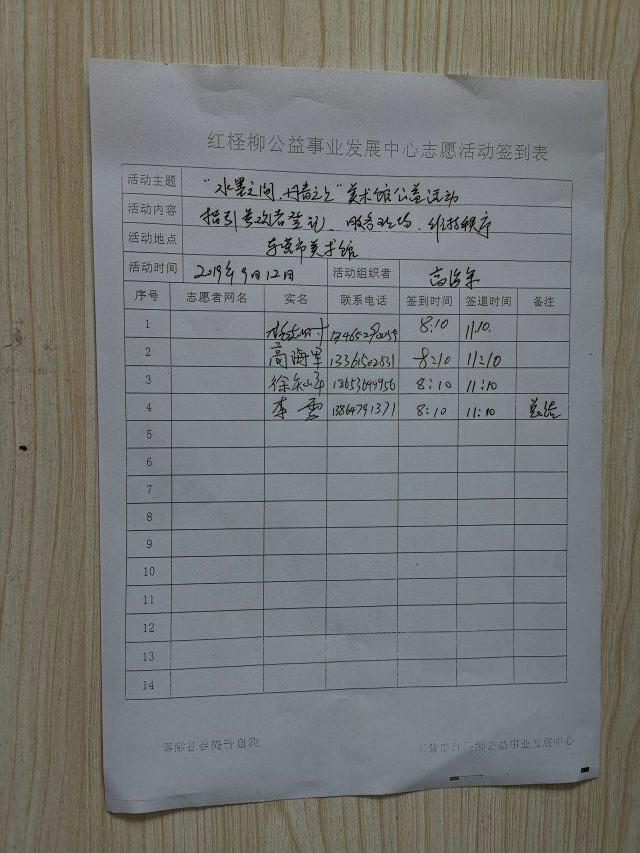 红柽柳公益事业发展中心志愿活动签到表
活动主题 "水墨之间,丹青之上"美术馆公益活动
活动内容 指引参观者登记、服务现场、维持秩序
活动地点 东营市美术馆
活动时间 2019年9月12日 活动组织者 高海军
序号 志愿者网名 实名 联系电话 签到时间 签退时间 备注
1 8:10 11:10
2 高海军 13361502831 8:10 11:10
3 8:10 11:10
4 李雪 13864791371 8:10 11:10
5
6
7
8
9
10
11
12
13
14
奉献社会 提升自我 东营市红柽柳公益事业发展中心